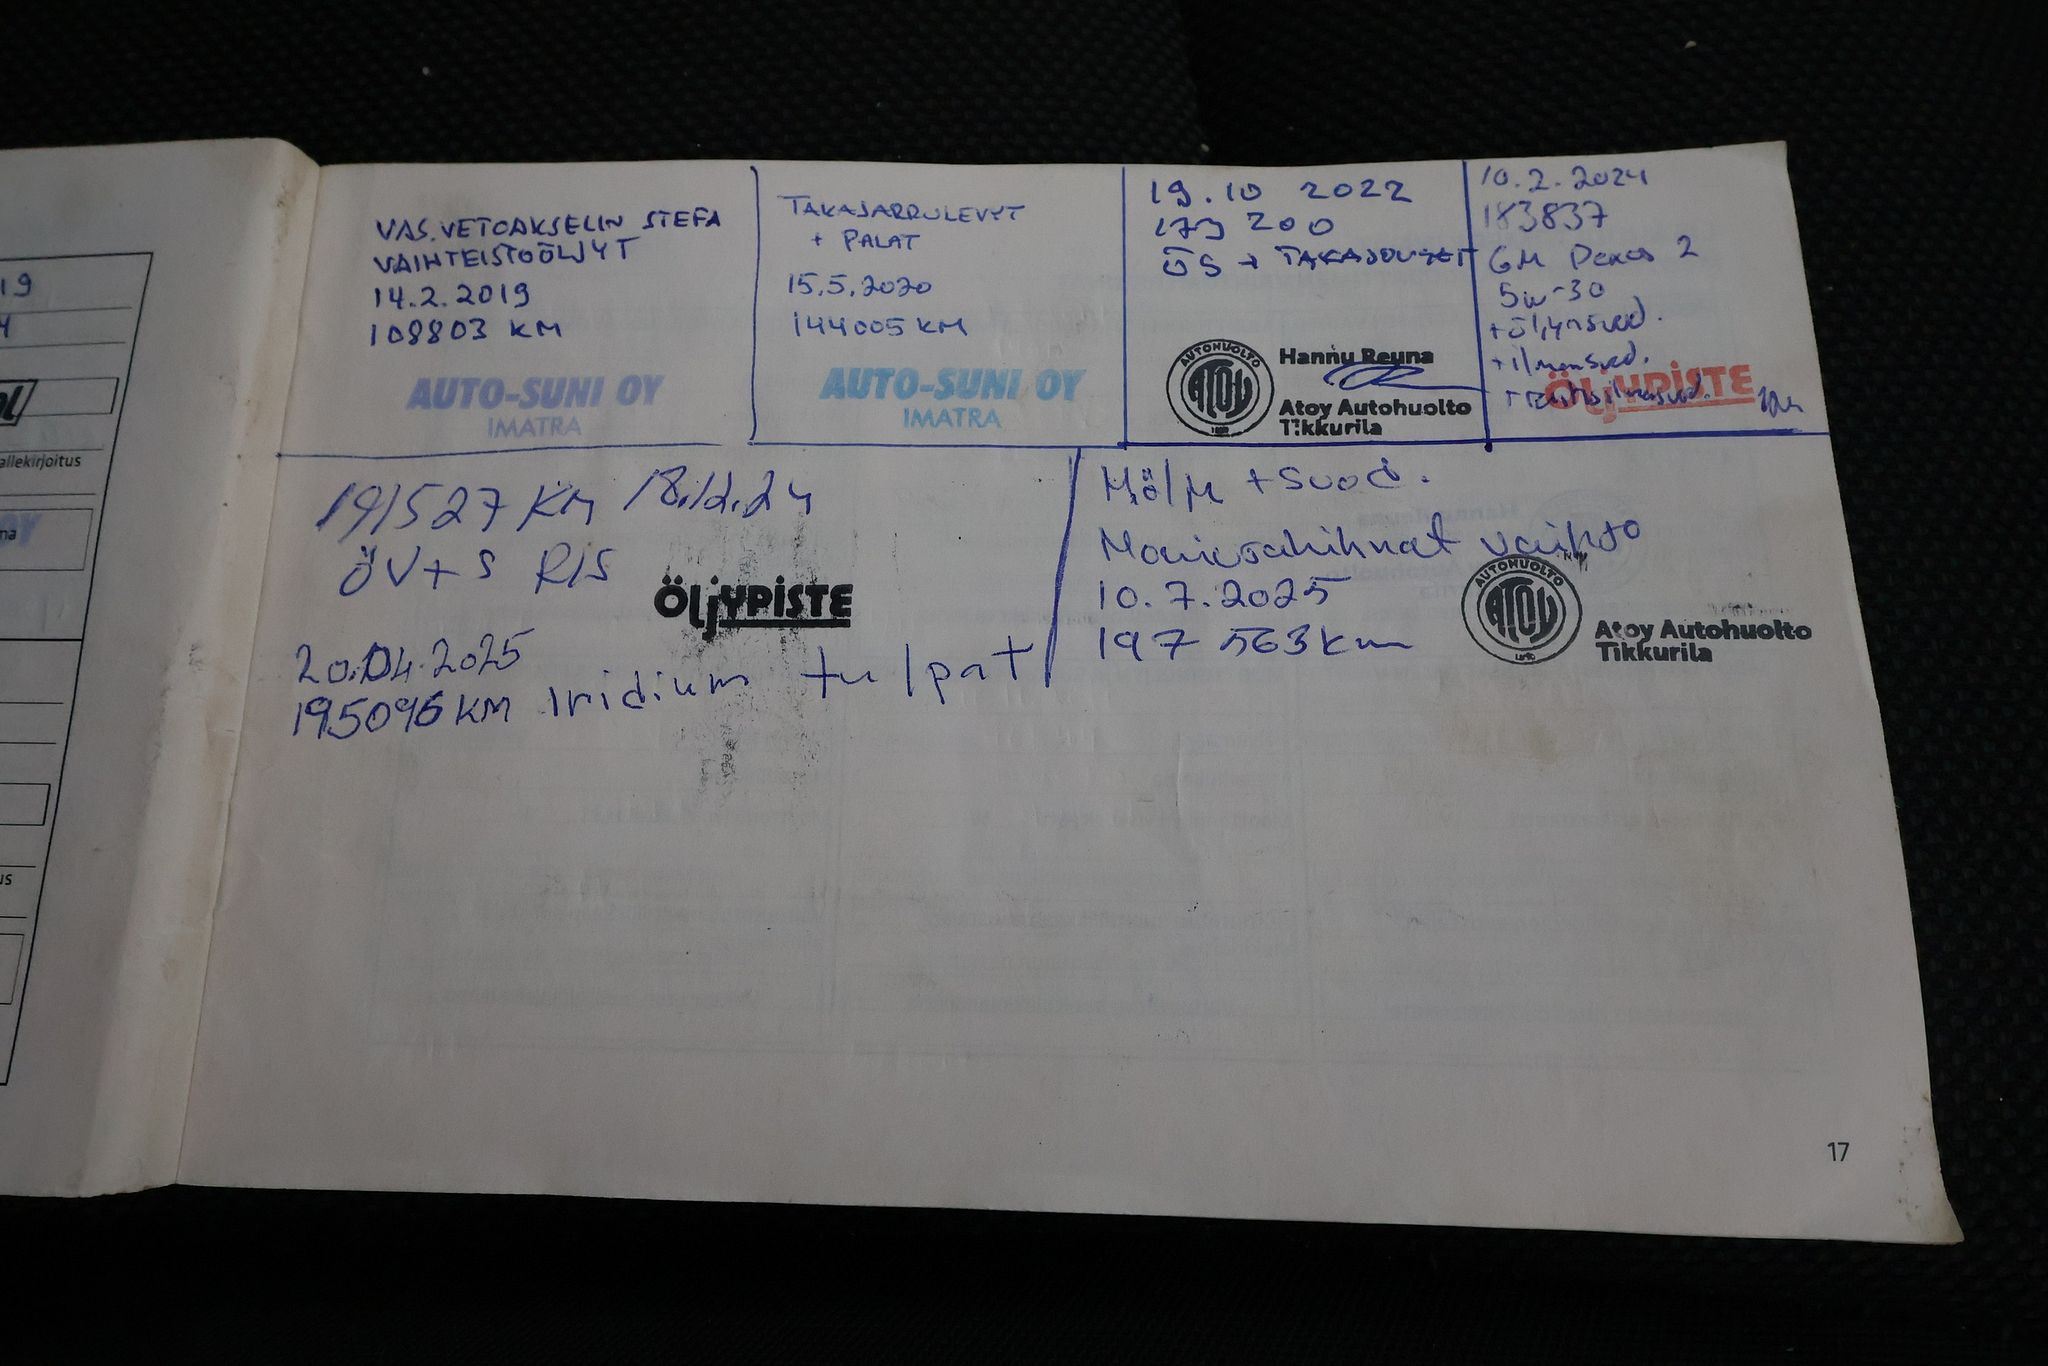 19
4
allekirjoitus
OY
ma
us
VAS.VETOAKSELIN STEFA
VAIHTEISTOÖLJYT
14.2.2019
108803 KM
AUTO-SUNI OY
IMATRA
TAKAJARRULEVYT
+ PALAT
15.5.2020
144005 KM
AUTO-SUNI OY
IMATRA
19.10 2022
173 200
ÖS + TAKAJOUSET
AUTOHUOLTO
ATOY
Hannu Reuna
Atoy Autohuolto
Tikkurila
10.2.2024
183837
GM Dexos 2
5w-30
+öljynsuod.
+ilmansuod.
+raitisilmasuod.
ÖljYPiSTE
191527 KM 18.12.24
ÖV+S R/S
ÖljYPiSTE
20.04.2025
195096 KM Iridium tulpat
M.ölj + Suod.
Moniurahihnat vaihto
10.7.2025
197 563 km
AUTOHUOLTO
ATOY
Atoy Autohuolto
Tikkurila
17